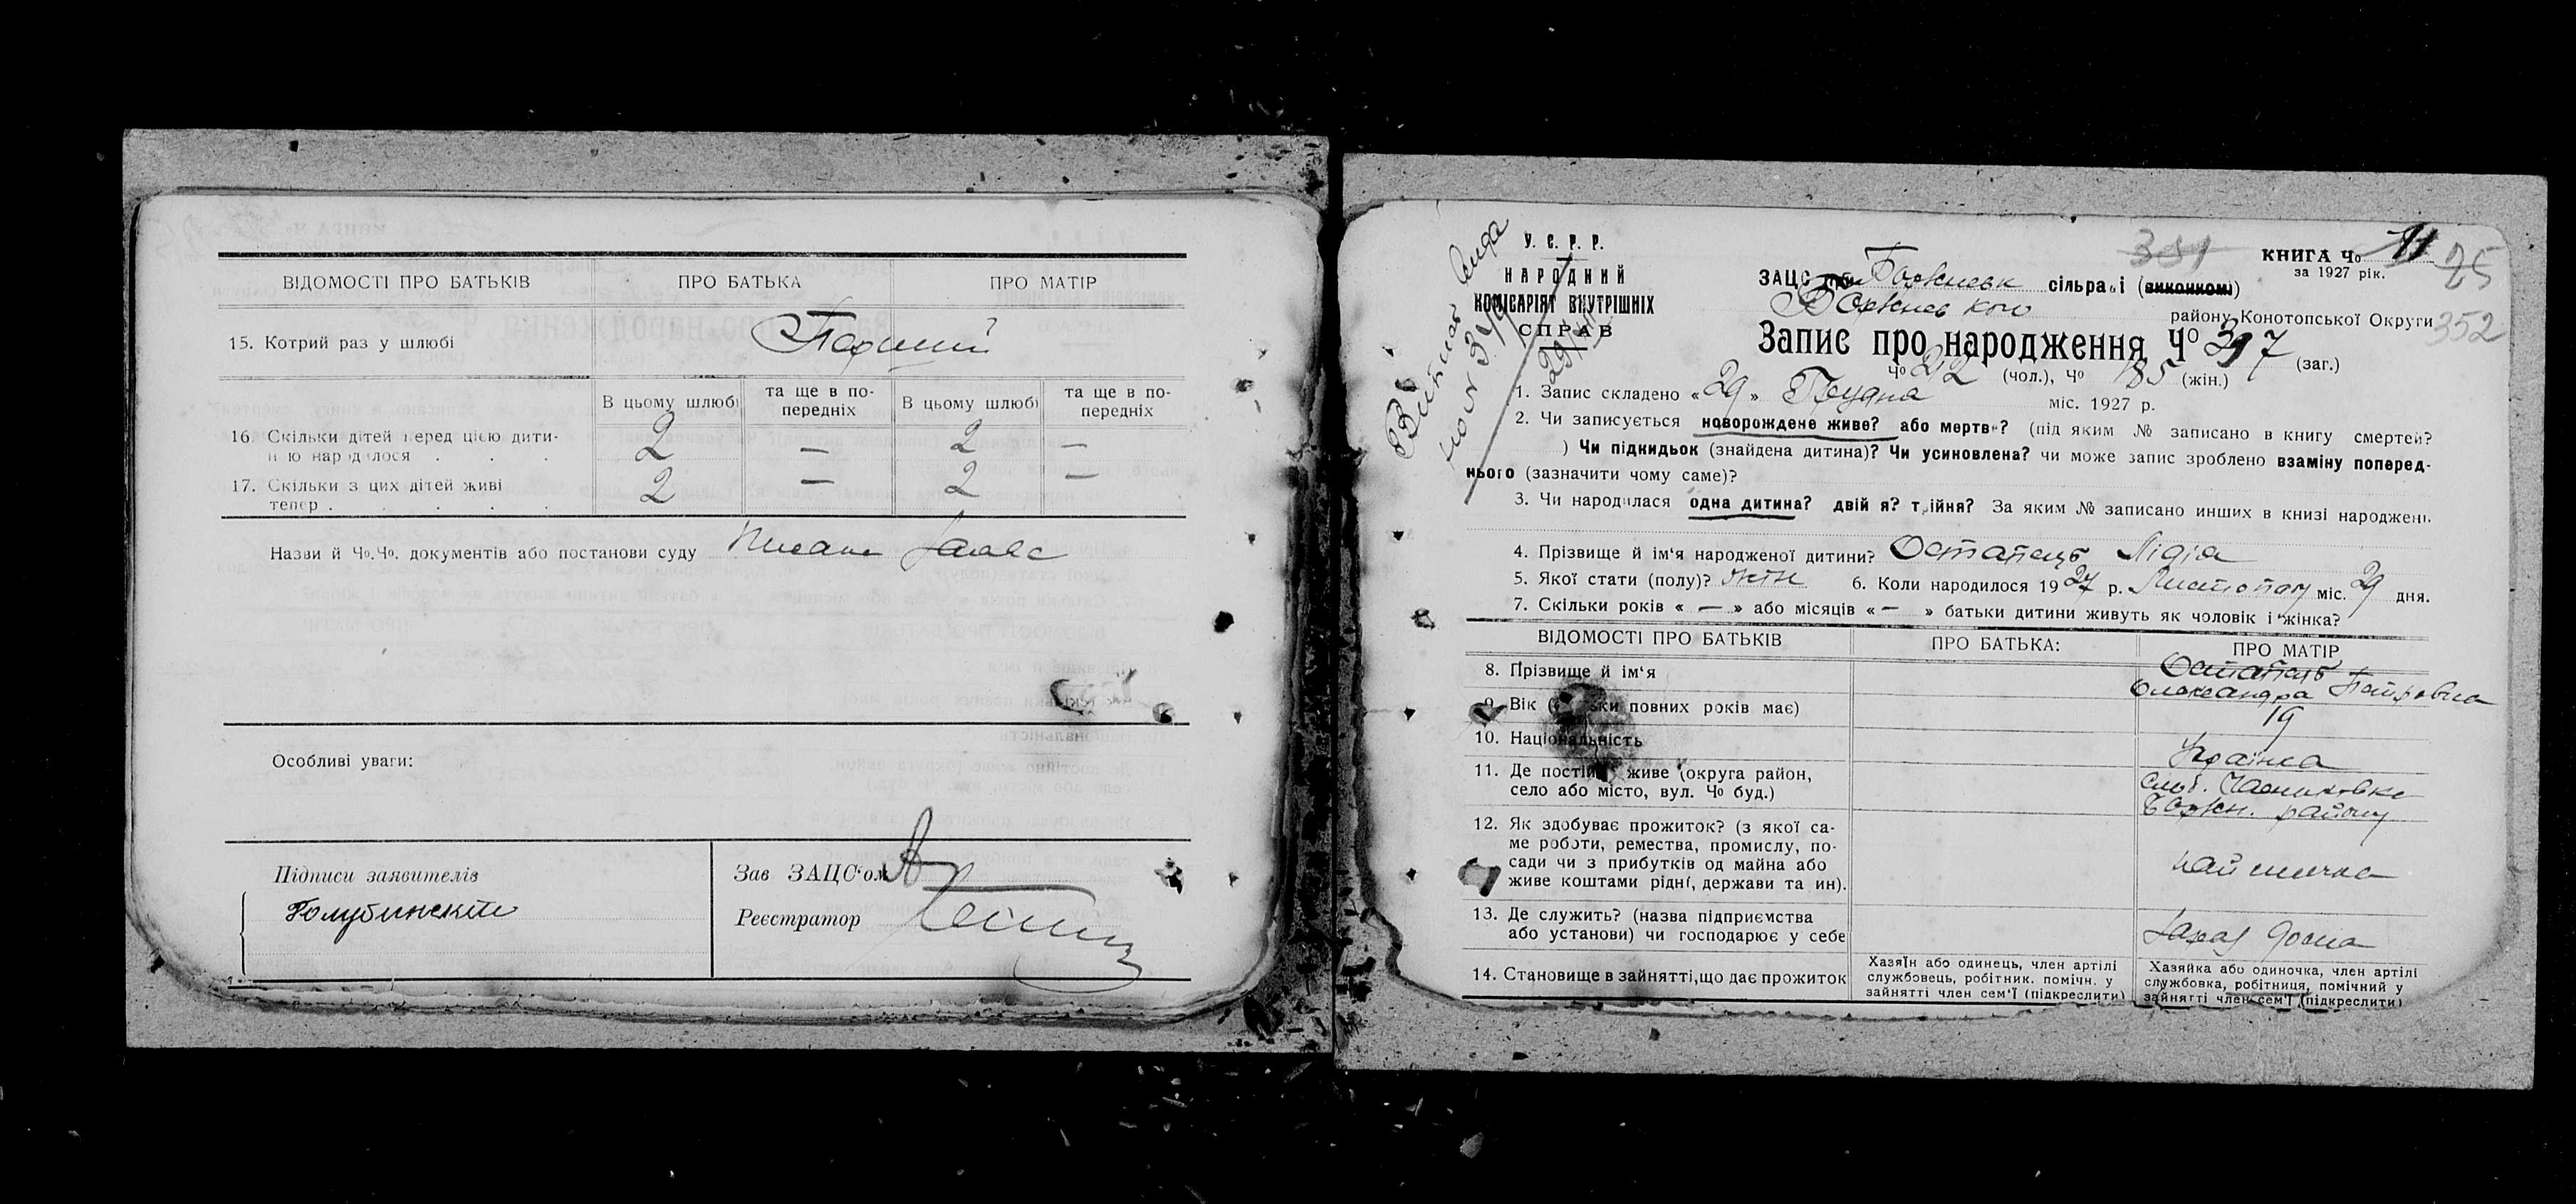 ВІДОМОСТІ ПРО БАТЬКІВ ПРО БАТЬКА ПРО МАТІР
15. Котрий раз у шлюбі Перший
В цьому шлюбі та ще в по- В цьому шлюбі та ще в по-
передніх передніх
16. Скільки дітей перед цією дити- 2 — 2 —
н ю народилося . . .
17. Скільки з цих дітей живі 2 — 2 —
тепер . . . . .
Назви й Чо.Чо. документів або постанови суду
Особливі уваги:
Підписи заявителів
Зав ЗАЦС'ом
Реєстратор
У. С. Р. Р.
НАРОДНИЙ
КОМІСАРІЯТ ВНУТРІШНІХ
СПРАВ
351
КНИГА Чо 11
за 1927 рік.
25
ЗАЦС при сільраді (виконкомі)
району Конотопської Округи
352
Запис про народження Чо 397 (заг.)
Чо 212 (чол.), Чо 185 (жін.)
1. Запис складено «29» Грудня міс. 1927 р.
2. Чи записується новорождене живе? або мертве? (під яким № записано в книгу смертей?
) Чи підкидьок (знайдена дитина)? Чи усиновлена? чи може запис зроблено взаміну поперед-
нього (зазначити чому саме)?
3. Чи народилася одна дитина? двійня? трійня? За яким № записано инших в книзі народжень
4. Прізвище й ім'я народженої дитини? Остапець Лідія
5. Якої стати (полу)? жін 6. Коли народилося 1927 р. Листопад міс. 29 дня.
7. Скільки років « — » або місяців « — » батьки дитини живуть як чоловік і жінка?
ВІДОМОСТІ ПРО БАТЬКІВ ПРО БАТЬКА: ПРО МАТІР
8. Прізвище й ім'я Остапець
Олександра Петровна
9. Вік (скільки повних років має) 19
10. Національність Українка
11. Де постійно живе (округа район,
село або місто, вул. Чо буд.)
району
12. Як здобуває прожиток? (з якої са-
ме роботи, ремества, промислу, по-
сади чи з прибутків од майна або
живе коштами рідні, держави та ин).
наймичка
13. Де служить? (назва підприємства
або установи) чи господарює у себе
14. Становище в зайнятті, що дає прожиток
Хазяїн або одинець, член артілі
службовець, робітник. помічн. у
зайнятті член сем'ї (підкреслити)
Хазяйка або одиночка, член артілі
службовка, робітниця, помічний у
зайнятті член сем'ї (підкреслити)